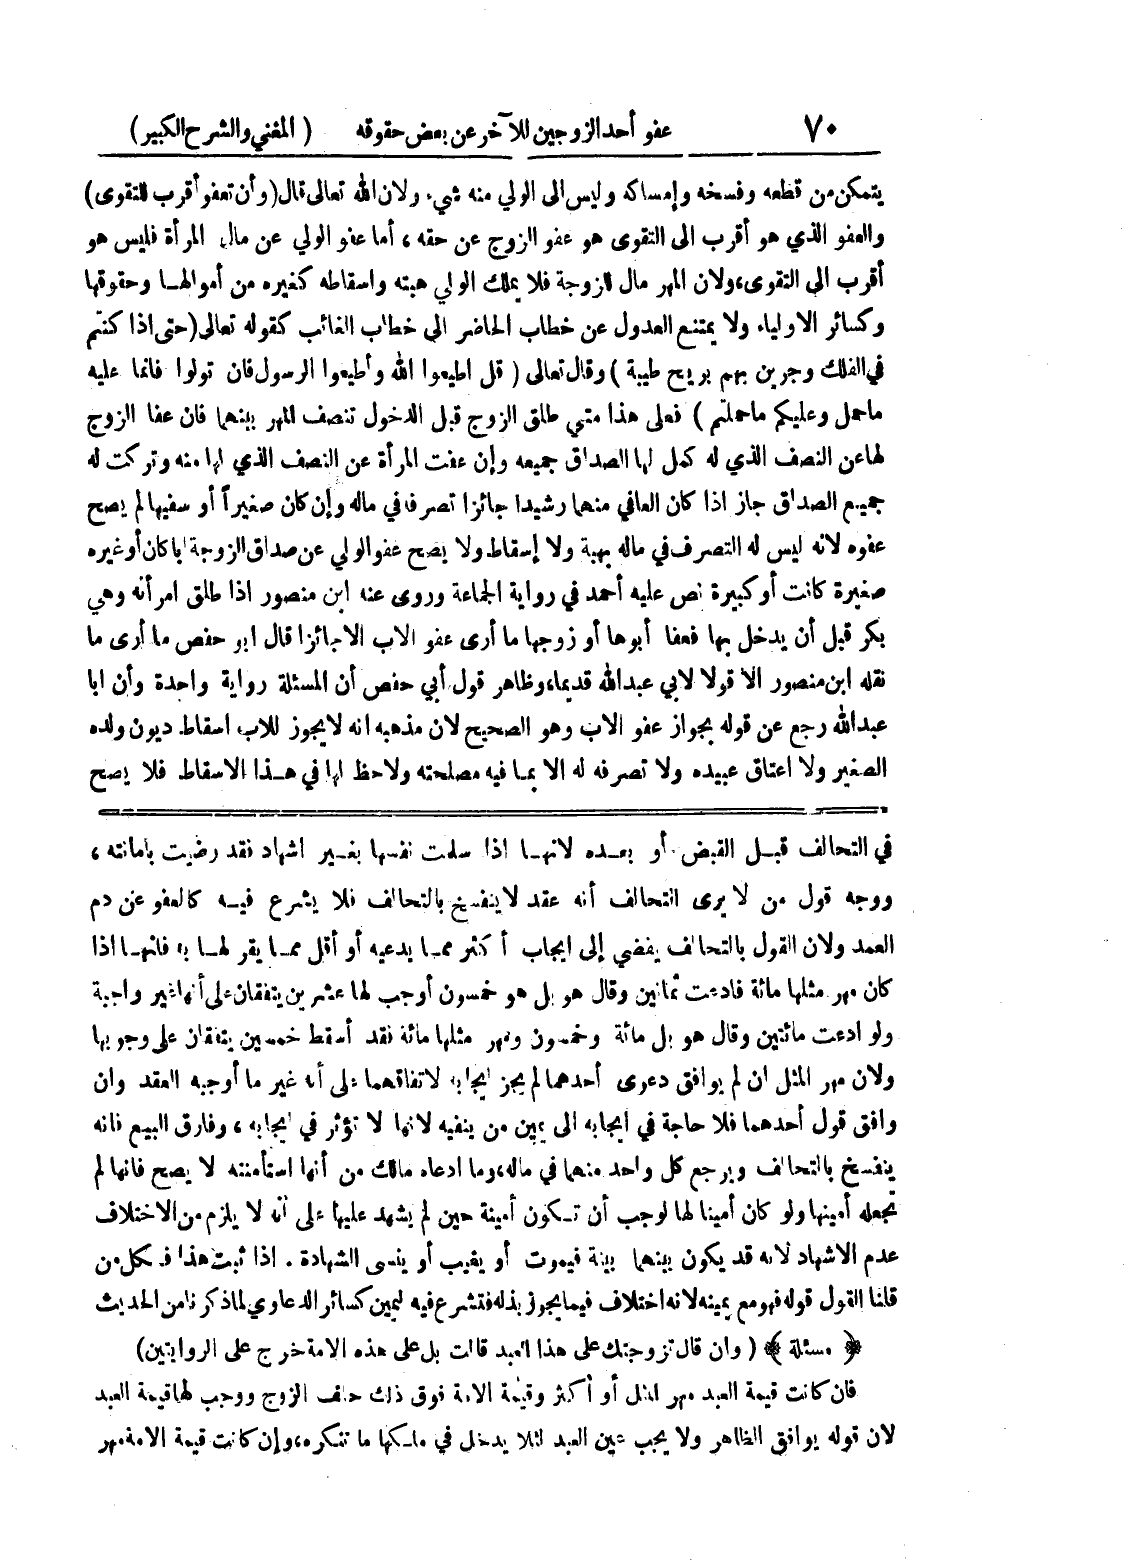 ٧٠ عفو أحد الزوجين للآخر عن بعض حقوقه ( المغني والشرح الكبير )
يتمكن من قطعه وفسخه وإمساكه وليس الى الولي منه شيء ولان الله تعالى قال ( وأن تعفو أقرب للتقوى )
والعفو الذي هو أقرب الى التقوى هو عفو الزوج عن حقه ، أما عفو الولي عن مال المرأة فليس هو
أقرب الى التقوى ، ولان المهر مال للزوجة فلا يملك الولي هبته واسقاطه كغيره من أموالهـا وحقوقها
وكسائر الاولياء ولا يمتنع العدول عن خطاب الحاضر الى خطاب الغائب كقوله تعالى ( حتى اذا كنتم
في الفلك وجرين بهم بريح طيبة ) وقال تعالى ( قل اطيعوا الله وأطيعوا الرسول فان تولوا فانما عليه
ماحمل وعليكم ماحملتم ) فعلى هذا متى طلق الزوج قبل الدخول تنصف المهر بينهما فان عفا الزوج
لها عن النصف الذي له كمل لها الصداق جميعه وإن عفت المرأة عن النصف الذي لها منه وتركت له
جميع الصداق جاز اذا كان العافي منهما رشيدا جائزا تصرفه في ماله وإن كان صغيراً أو سفيها لم يصح
عفوه لانه ليس له التصرف في ماله بهبة ولا إسقاط ولا يصح عفو الولي عن صداق الزوجة أبا كان أو غيره
صغيرة كانت أو كبيرة نص عليه أحمد في رواية الجماعة وروى عنه ابن منصور اذا طلق امرأته وهي
بكر قبل أن يدخل بها فعفا أبوها أو زوجها ما أرى عفو الاب الا جائزا قال ابو حفص ما أرى ما
نقله ابن منصور الا قولا لابي عبدالله قديما ، وظاهر قول أبي حفص أن المسئلة رواية واحدة وأن ابا
عبدالله رجع عن قوله بجواز عفو الاب وهو الصحيح لان مذهبه انه لا يجوز للاب اسقاط ديون ولده
الصغير ولا اعتاق عبيده ولا تصرفه له الا بمـا فيه مصلحته ولا حظ لها في هـذا الاسقاط فلا يصح
في التحالف قبـل القبض أو بعـده لانهـا اذا سلمت نفسها بغـير اشهاد فقد رضيت بامانته ،
ووجه قول من لا يرى التحالف أنه عقد لا ينفسخ بالتحالف فلا يشرع فيـه كالعفو عن دم
العمد ولان القول بالتحالف يفضي إلى ايجاب أكثر ممـا يدعيه أو أقل ممـا يقر لهـا به فانهـا اذا
كان مهر مثلها مائة فادعت ثمانين وقال هو بل هو خمسون أوجب لها عشرين يتفقان على أنها غير واجبة
ولو ادعت مائتين وقال هو بل مائة وخمسون ومهر مثلها مائة فقد أسقط خمسين يتفقان على وجوبها
ولان مهر المثل ان لم يوافق دعوى أحدهما لم يجز إيجابه لاتفاقهما على أنه غير ما أوجبه العقد وان
وافق قول أحدهما فلا حاجة في ايجابه الى يمين من ينفيه لانها لا تؤثر في ايجابه ، وفارق البيع فانه
ينفسخ بالتحالف ويرجع كل واحد منهما في ماله ، وما ادعاه مالك من أنها استأمنته لا يصح فانها لم
تجعله أمينها ولو كان أمينا لها لوجب أن تـكون أمينة حين لم يشهد عليها على أنه لا يلزم من الاختلاف
عدم الاشهاد لانه قد يكون بينهما بينة فيموت أو يغيب أو ينسى الشهادة . اذا ثبت هذا فـكل من
قلنا القول قوله فهو مع يمينه لانه اختلاف فيما يجوز بذله فتشرع فيه اليمين كسائر الدعاوي لما ذكرنا من الحديث
﴿ مسئلة ﴾ ( وان قال تزوجتك على هذا العبد قالت بل على هذه الامة خرج على الروايتين )
فان كانت قيمة العبد مهر المثل أو أكثر وقيمة الامة فوق ذلك حلف الزوج ووجب لها قيمة العبد
لان قوله يوافق الظاهر ولا يجب عين العبد لئلا يدخل في ملـكها ما تنكره ، وإن كانت قيمة الامة مهر